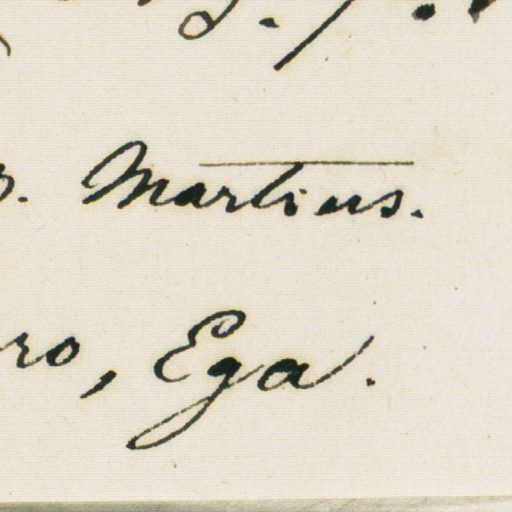 Martius.
ro, Ega.